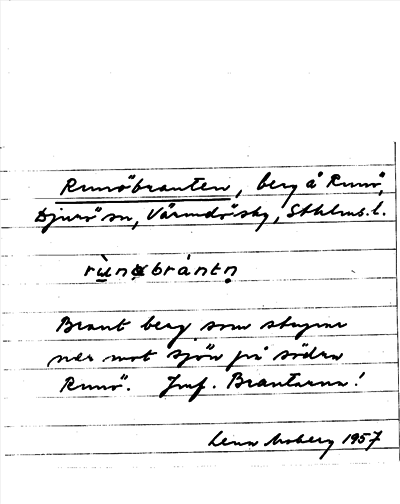 Runöbranten, berg å Runö,
Djurö sn, Värmdö sky, Sthlms. l.
rùnøbrántn̥
Brant berg som stupar
ner mot sjön på södra
Runö. Jmf. Brantarna!
Lena Moberg 1957